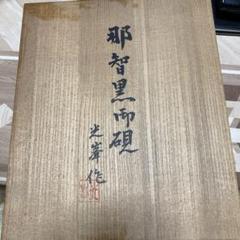 那智黒雨硯
光峯作